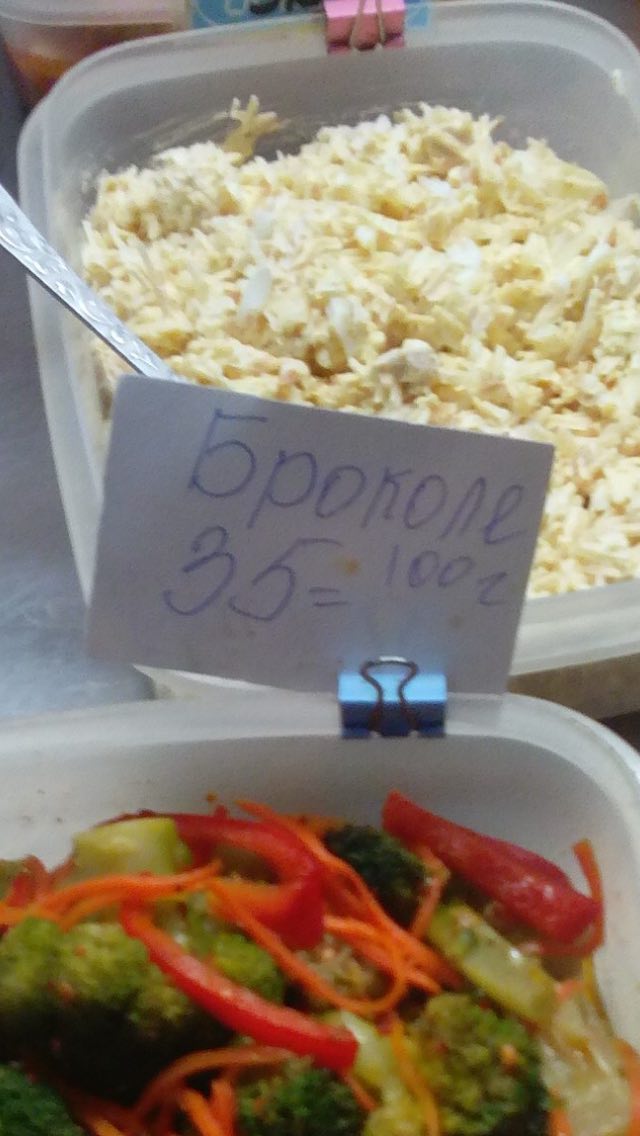 Броколе
35= 100г